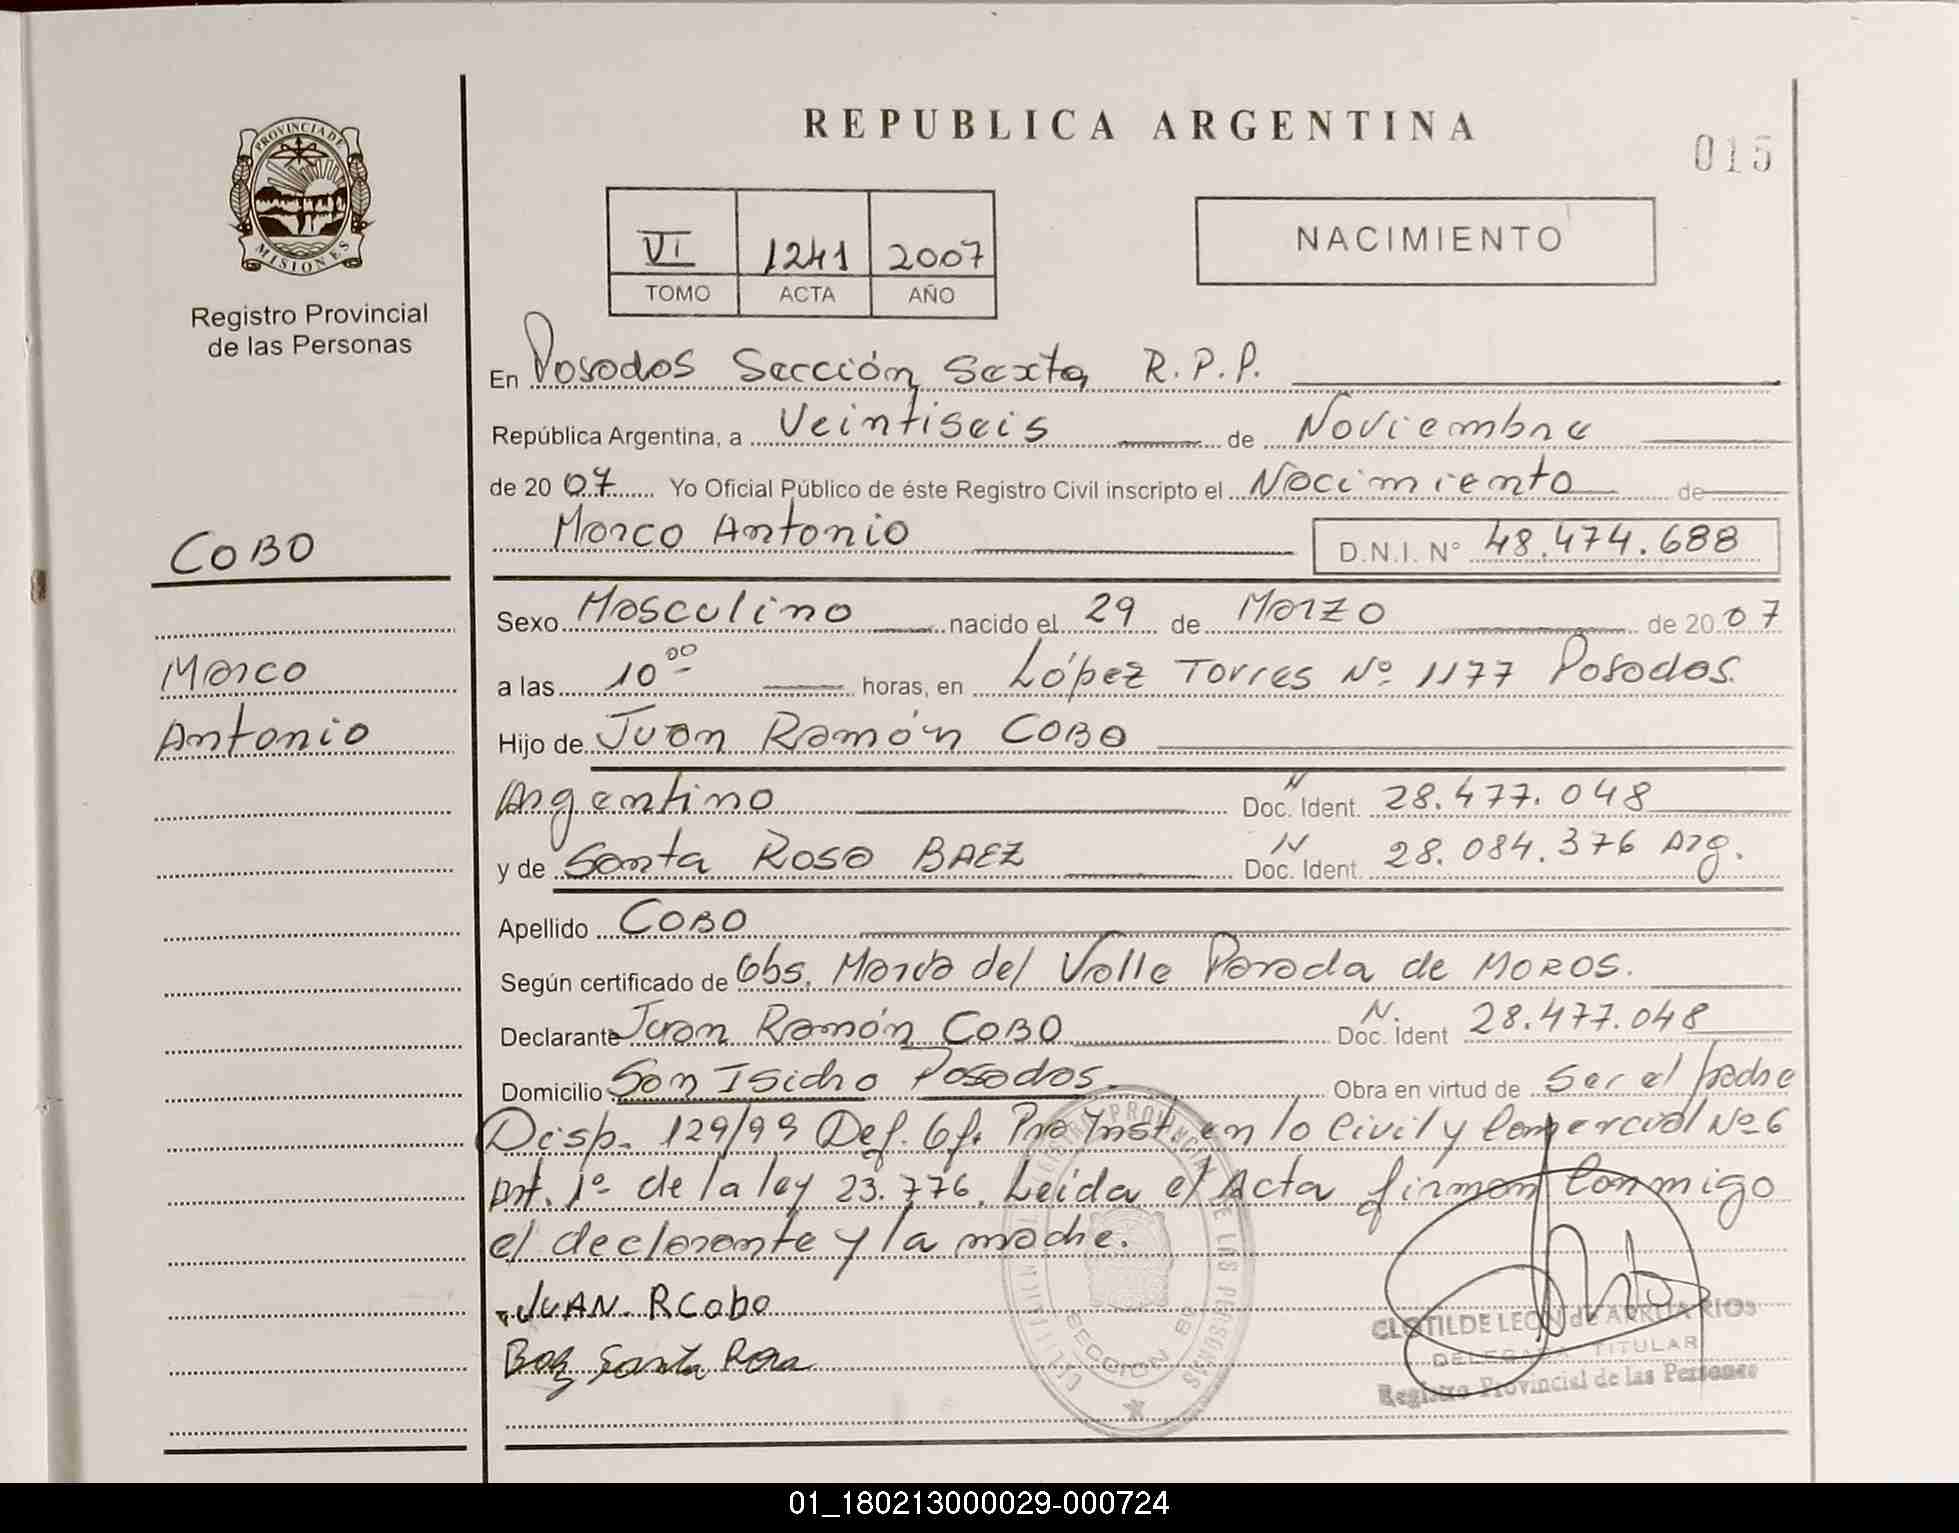 REPUBLICA ARGENTINA
015
PROVINCIA DE
MISIONES
Registro Provincial
de las Personas
VI 1241 2007
TOMO ACTA AÑO
NACIMIENTO
En Posadas Sección Sexta R.P.P.
República Argentina, a Veintiseis de Noviembre
de 20 07 Yo Oficial Público de éste Registro Civil inscripto el Nacimiento de
Marco Antonio D.N.I. N° 48.474.688
COBO
Marco
Antonio
Sexo Masculino nacido el 29 de Marzo de 20 07
a las 10 00 horas, en López Torres Nº 1177 Posadas.
Hijo de Juan Ramón COBO
Argentino N Doc. Ident. 28.477.048
y de Santa Rosa BAEZ N Doc. Ident. 28.084.376 Arg.
Apellido COBO
Según certificado de Obs. María del Valle Parada de MOROS.
Declarante Juan Ramón COBO N. Doc. Ident 28.477.048
Domicilio San Isidro Posadas. Obra en virtud de Ser el padre
Disp. 129/99 Def. Of. Pra Inst. en lo Civil y Comercial Nº 6
Art. 1º de la ley 23.776. Leida el Acta firman Conmigo
el declarante y la madre.
JUAN. R Cobo
Baez Santa Rosa
CLOTILDE LEON de ARRUARIOS
DELEGADA TITULAR
Registro Provincial de las Personas
REGISTRO PROVINCIAL DE LAS PERSONAS
SECCION
01_180213000029-000724